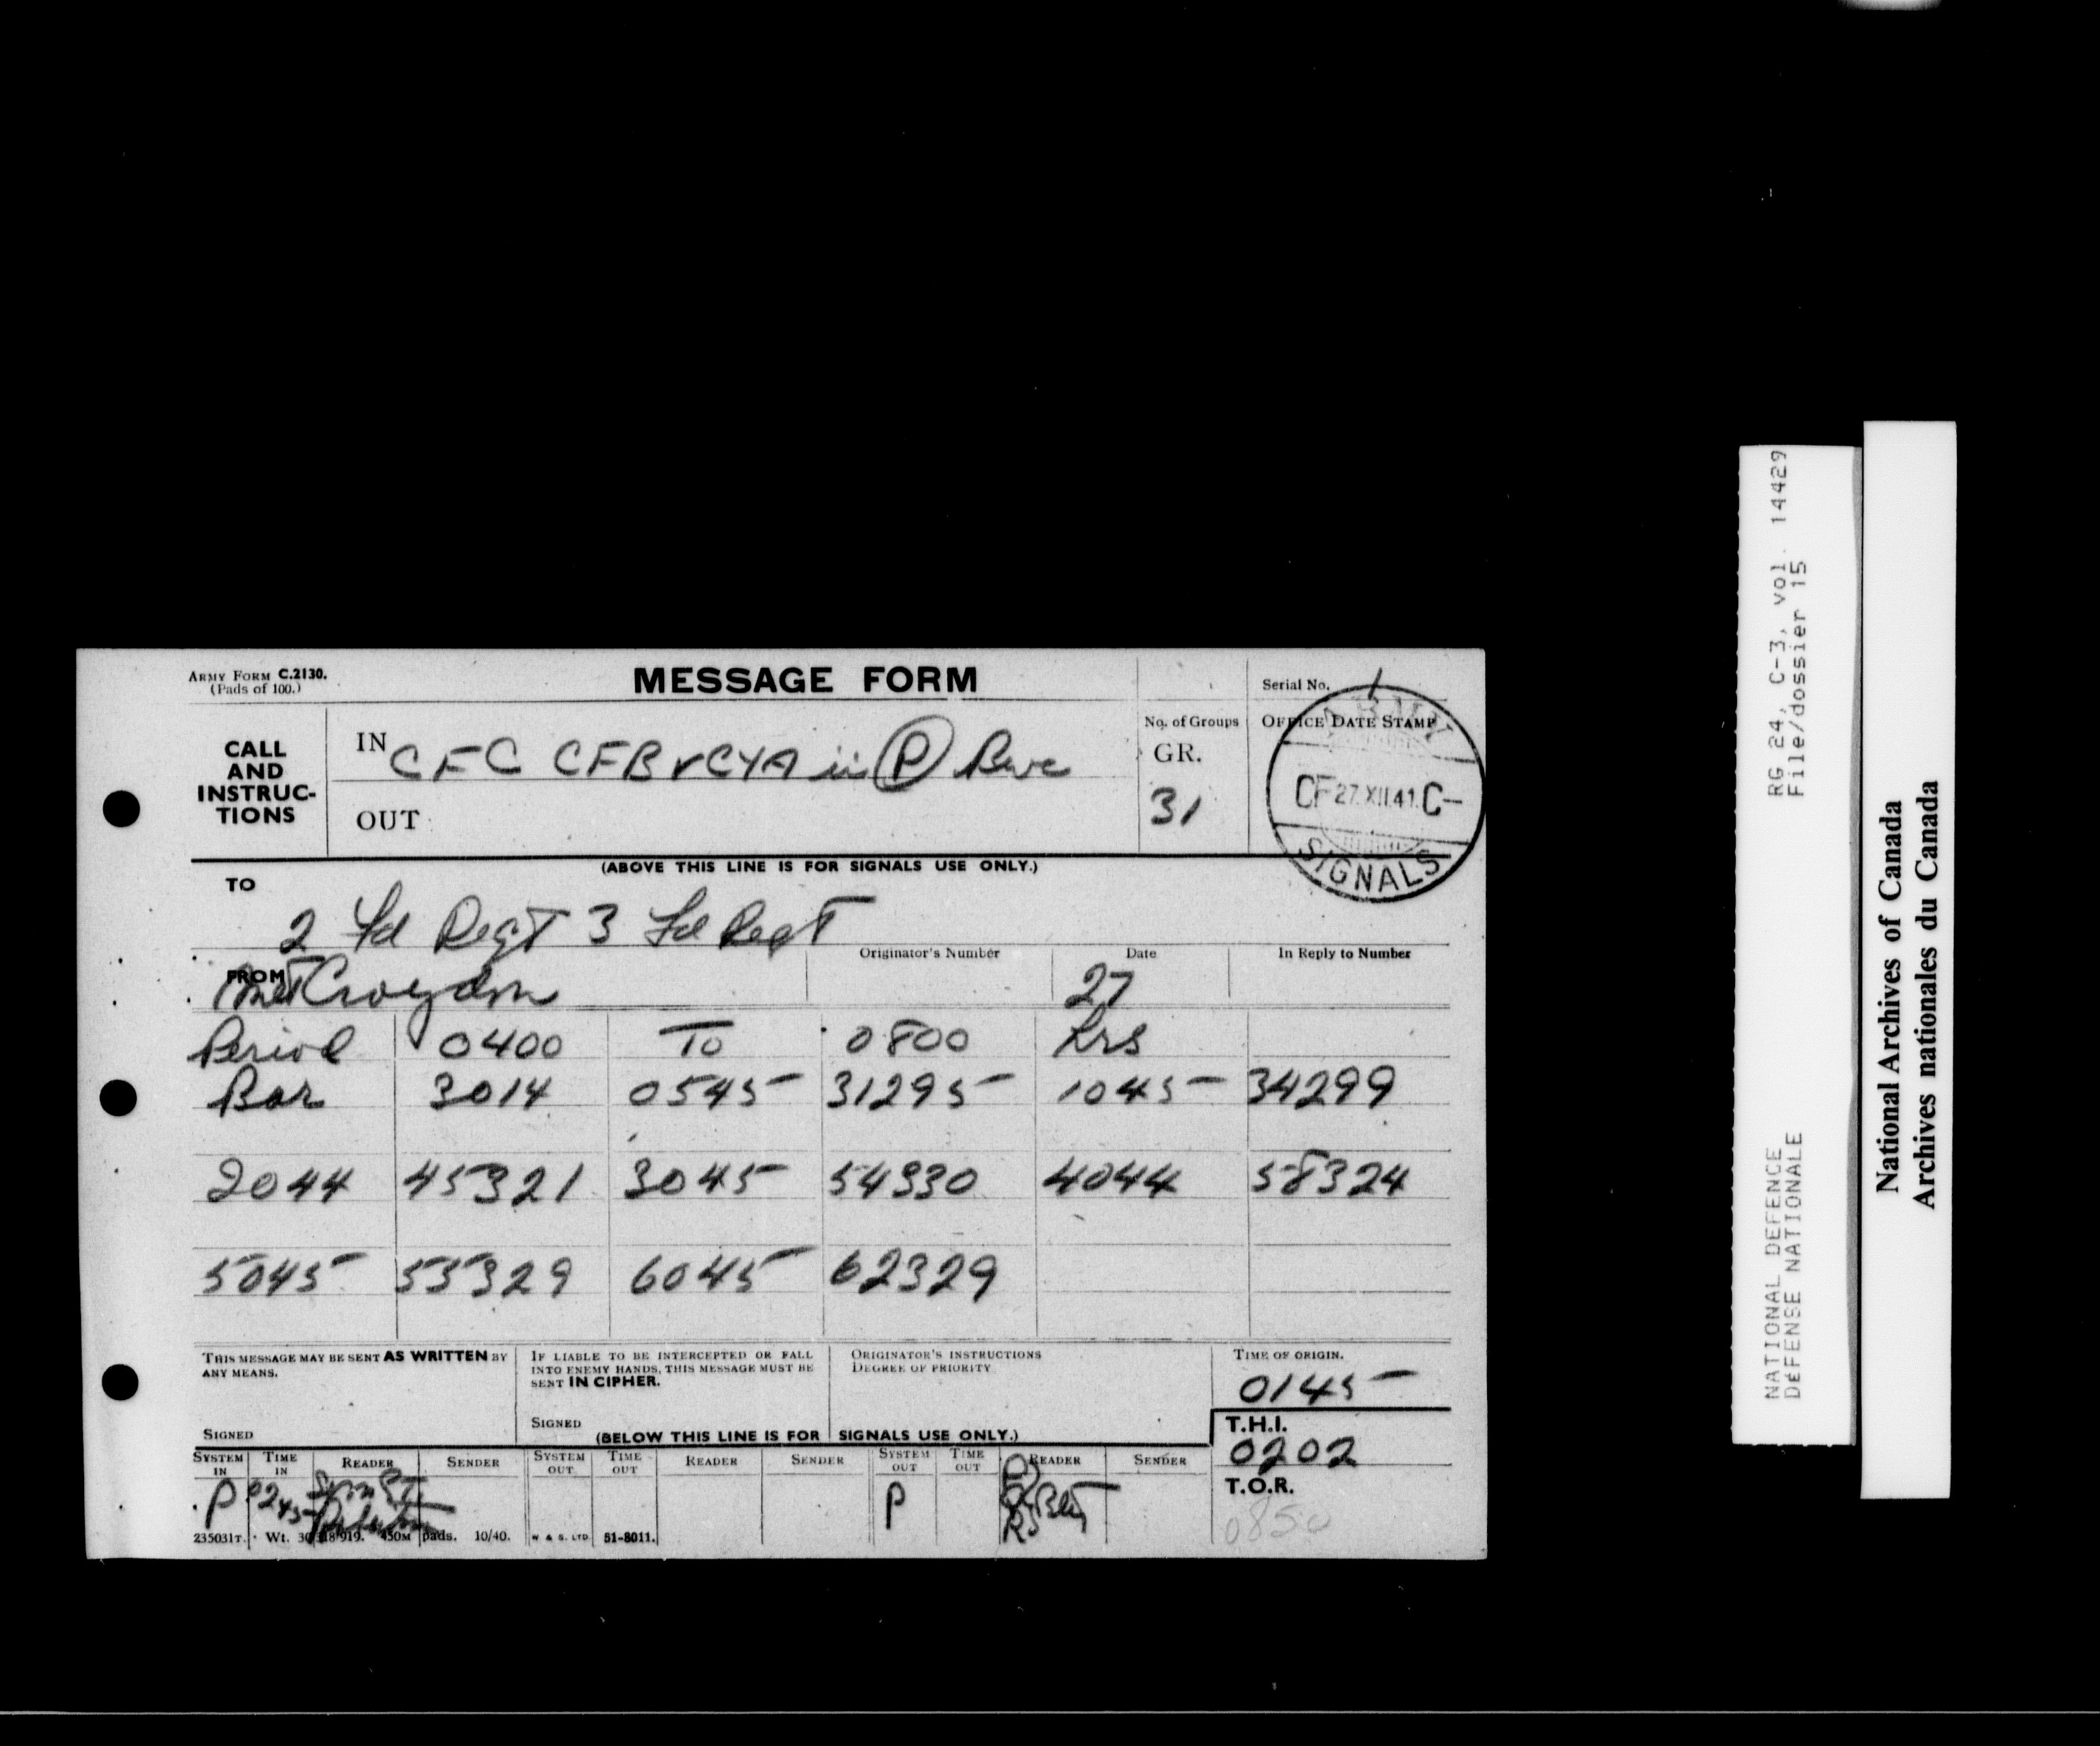 ARMY FORM C.2130.
(Pads of 100.)
MESSAGE FORM
Serial No. 1
CALL AND INSTRUC-TIONS
IN CFC CFB V CYA in (P)
OUT
No. of Groups
GR.
31
OFFICE DATE STAMP
ARMY
CF 27.XII.41. C-
SIGNALS
(ABOVE THIS LINE IS FOR SIGNALS USE ONLY.)
TO
2 Fd Regt 3 Fd Regt
FROM Met Croydon
Originator's Number
Date
27
In Reply to Number
Period 0400 To 0800 hrs
Bar 3014 0545 31295 1045 34299
2044 45321 3045 54330 4044 58324
5045 55329 6045 62329
THIS MESSAGE MAY BE SENT AS WRITTEN BY ANY MEANS.
SIGNED
IF LIABLE TO BE INTERCEPTED OR FALL INTO ENEMY HANDS, THIS MESSAGE MUST BE SENT IN CIPHER.
SIGNED
ORIGINATOR'S INSTRUCTIONS
DEGREE OF PRIORITY
TIME OF ORIGIN.
0145
(BELOW THIS LINE IS FOR SIGNALS USE ONLY.)
T.H.I.
0202
T.O.R.
0850
SYSTEM IN TIME IN READER SENDER SYSTEM OUT TIME OUT READER SENDER SYSTEM OUT TIME OUT READER SENDER
P 0245 P
235031T. Wt. 30318/919. 450M pads. 10/40. W & S. LTD 51-8011.
RG 24, C-3, vol. 14429
File/dossier 15
NATIONAL DEFENCE
DÉFENSE NATIONALE
National Archives of Canada
Archives nationales du Canada